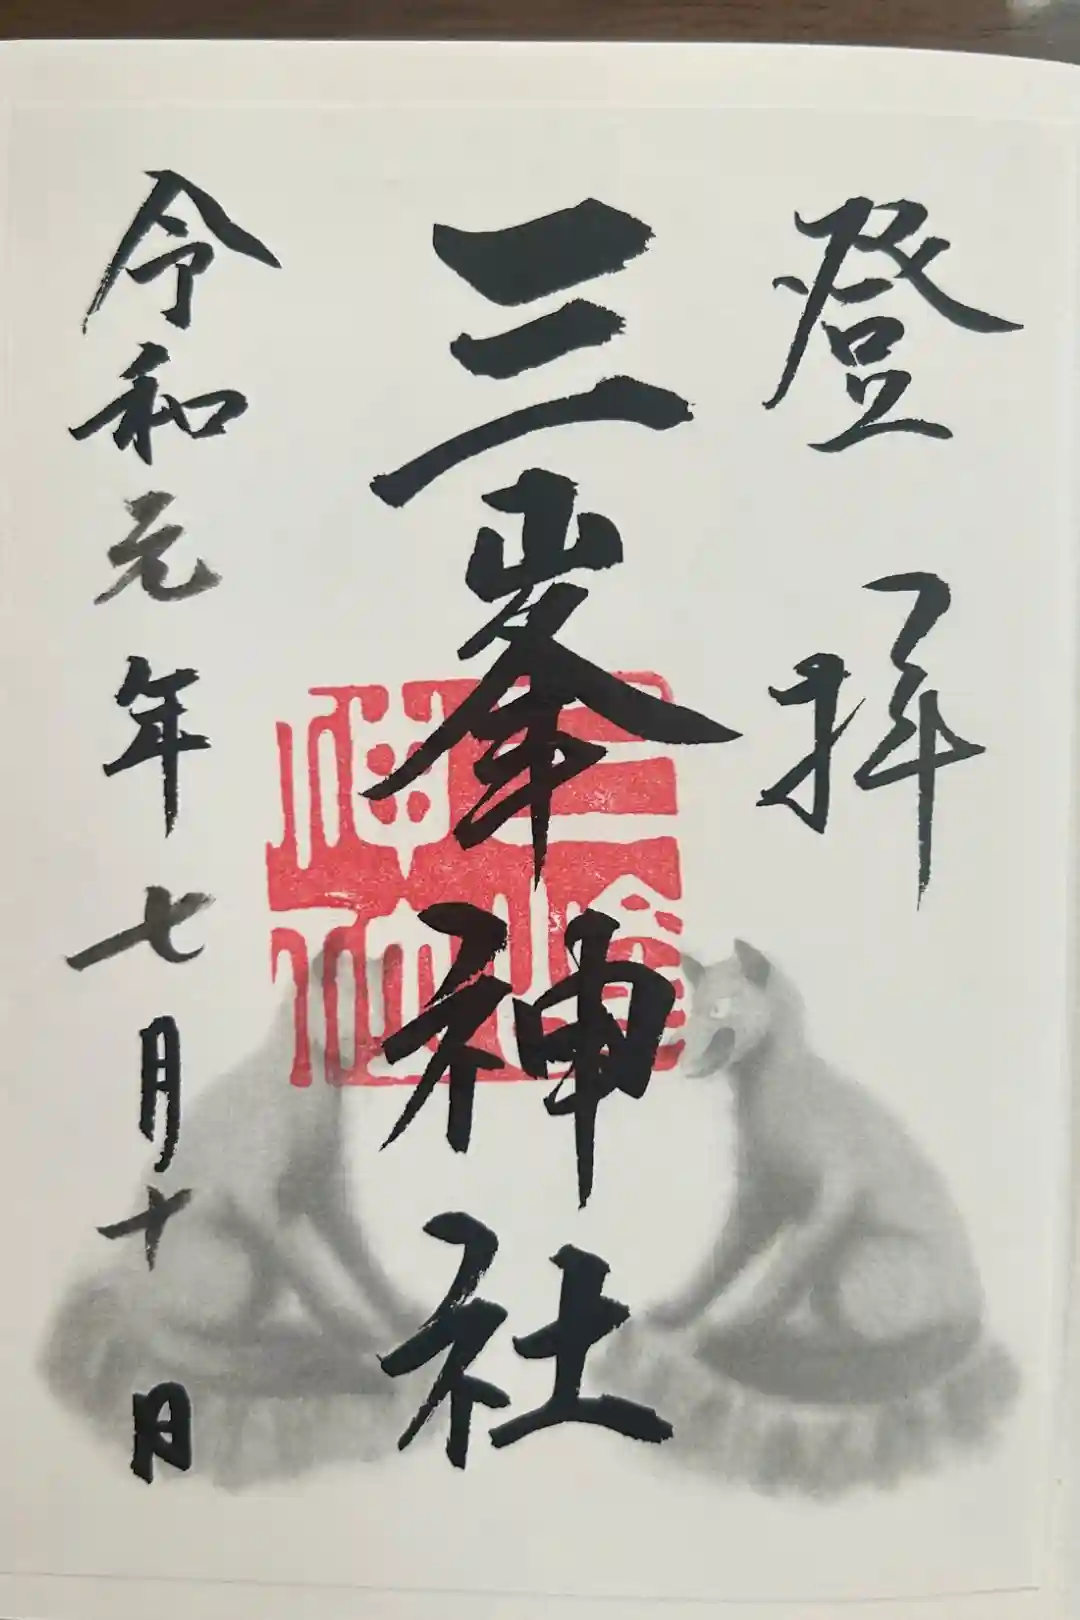 登拝
三峯神社
令和元年七月十日
三峰神社